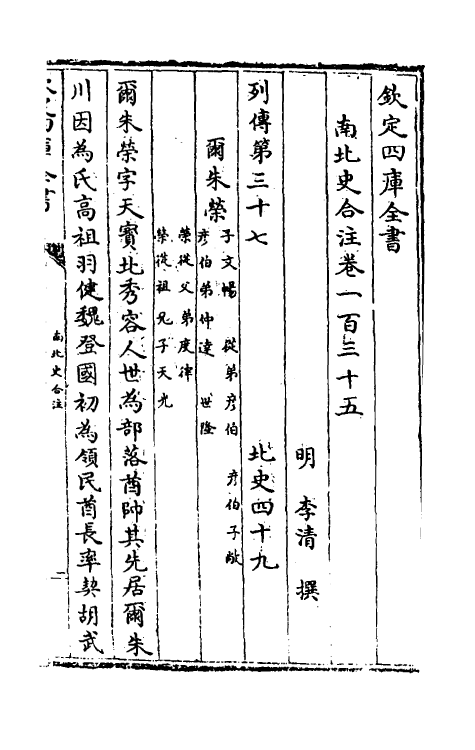 欽定四庫全書
南北史合注卷一百三十五
明 李清 撰
列傳第三十七 北史四十九
爾朱榮
子文暢 從弟彥伯 彥伯子敞
彥伯弟仲遠 世隆
榮從父弟度律
榮從祖兄子天光
爾朱榮字天寶北秀容人世為部落酋帥其先居爾朱
川因為氏高祖羽健魏登國初為領民酋長率契胡武
南北史合注